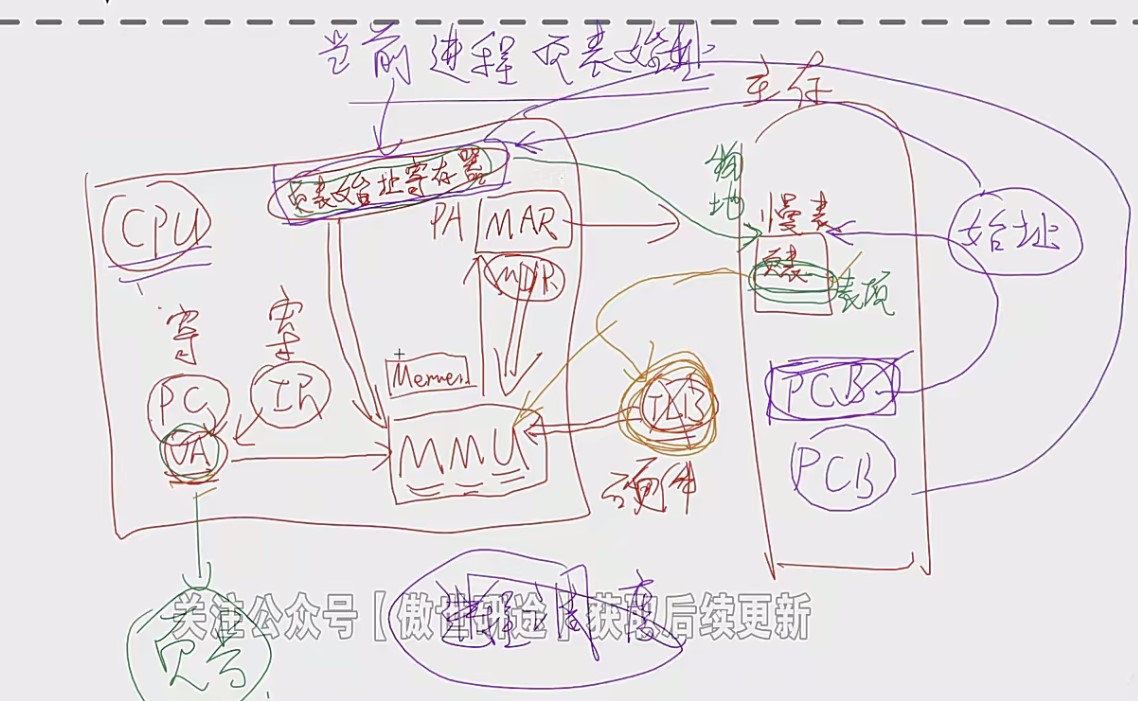 当前进程页表始址
主存
页表始址寄存器
CPU
PA
MAR
MDR
物
地
慢表
页表
表项
始址
寄
寄
PC
IR
VA
MMU
TLB
硬件
PCB
PCB
页号
进程调度
关注公众号【傲世研途】获取后续更新